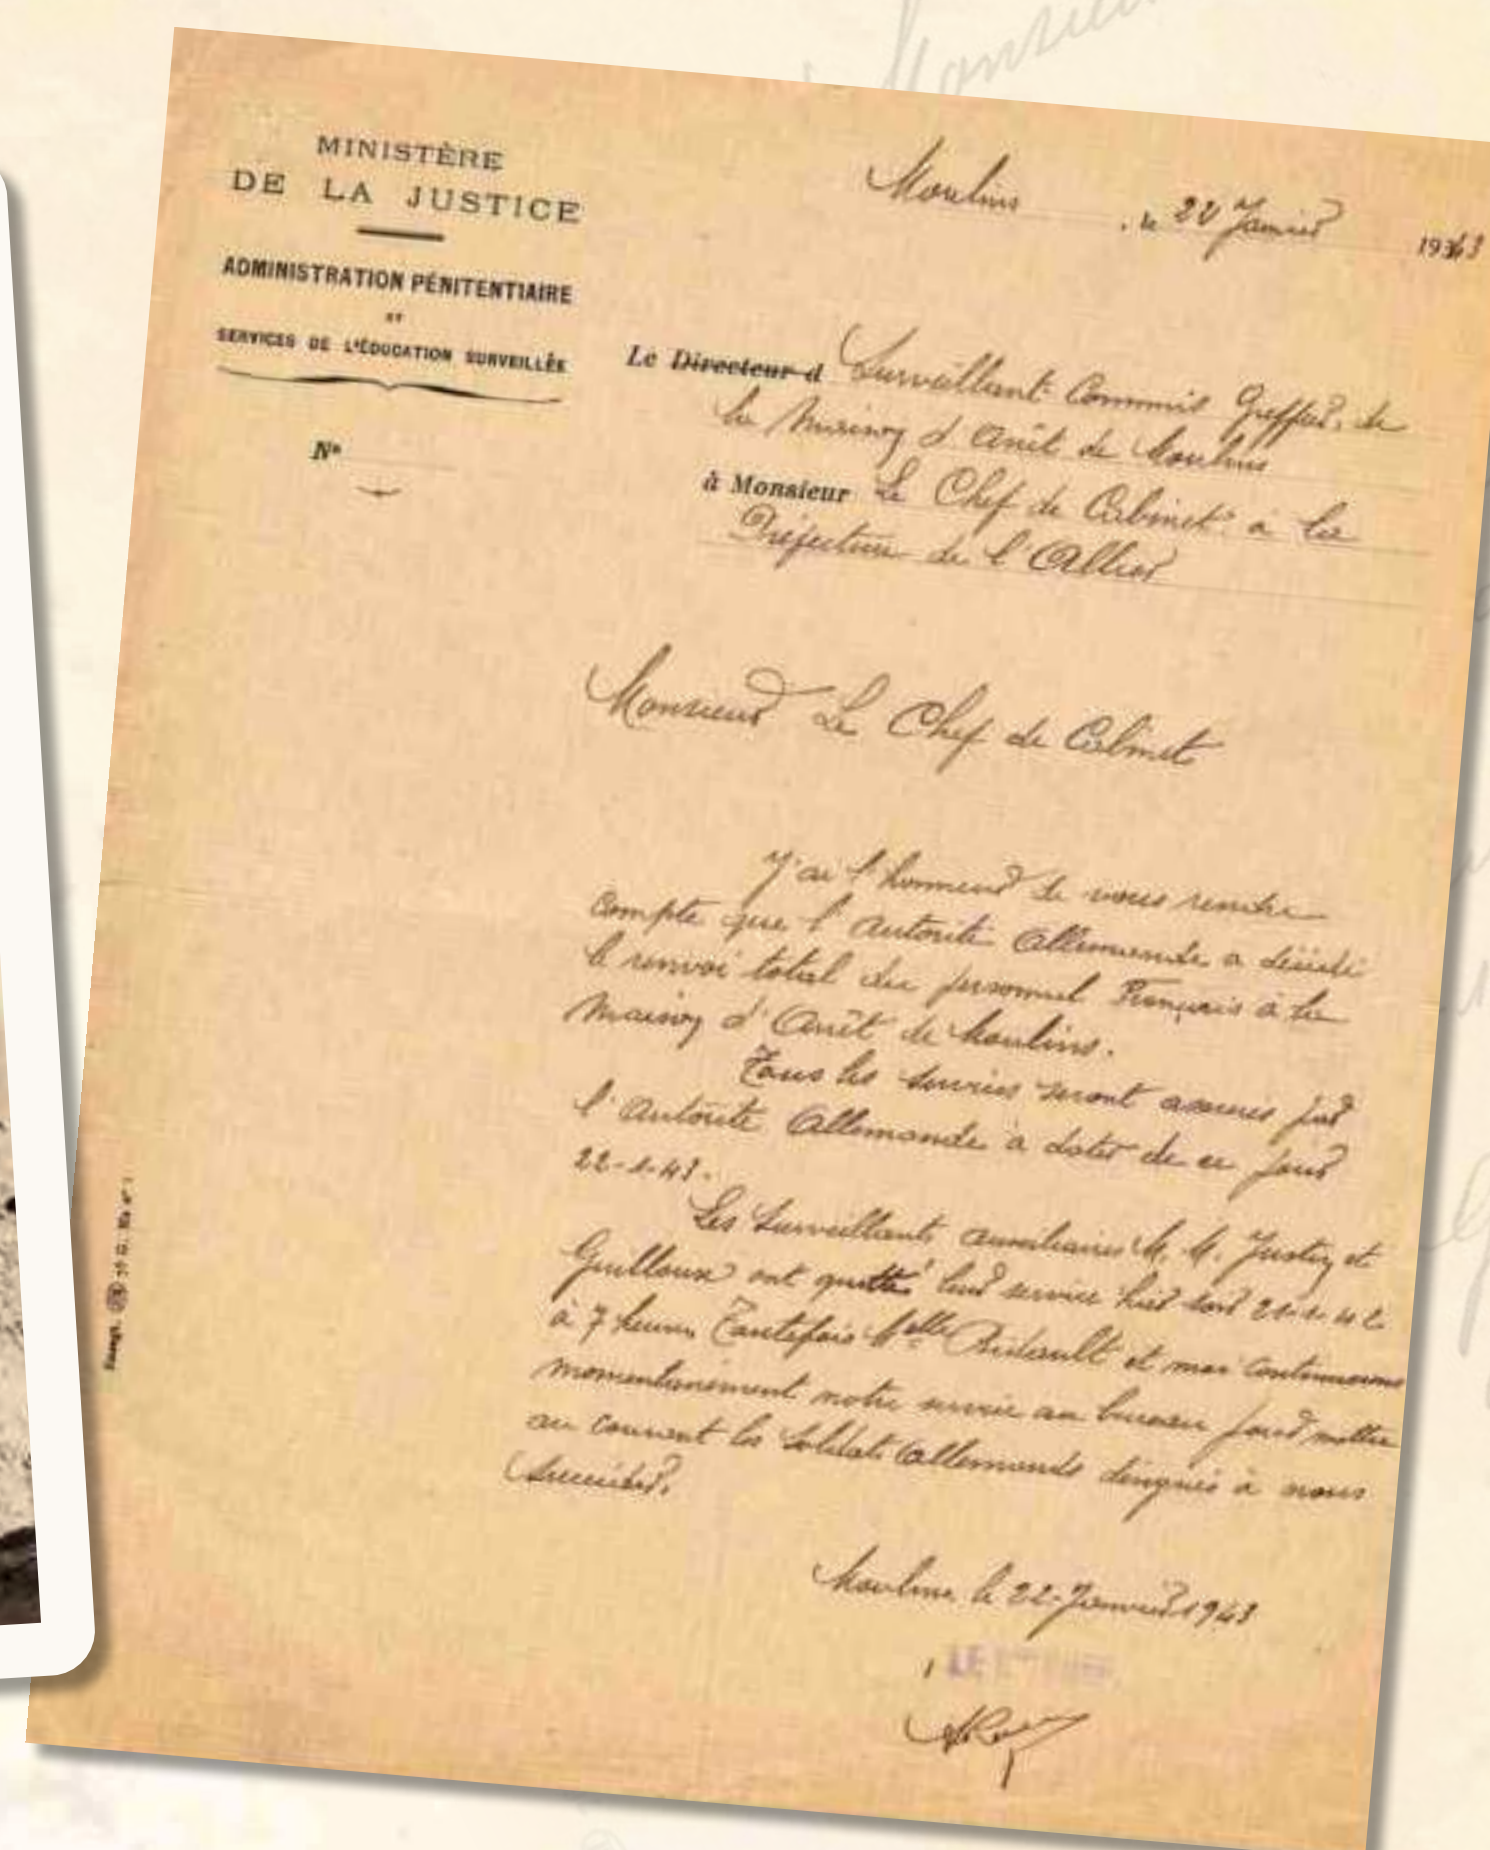 MINISTÈRE
DE LA JUSTICE
ADMINISTRATION PÉNITENTIAIRE
ET
SERVICES DE L'ÉDUCATION SURVEILLÉE
N°
Moulins, le 22 Janvier 1943
Le Directeur d Surveillant-Commis Greffier, de
la Maison d'Arrêt de Moulins
à Monsieur Le Chef de Cabinet à la
Préfecture de l'Allier
Monsieur Le Chef de Cabinet
J'ai l'honneur de vous rendre
compte que l'Autorité Allemande a décidé
le renvoi total du personnel Français à la
Maison d'Arrêt de Moulins.
Tous les services seront assurés par
l'Autorité Allemande à dater de ce jour
22-1-43.
Les Surveillants auxiliaires M. M. Justin et
Guilloux ont quitté leur service hier soir 21-1-42
à 7 heures Toutefois Melle Bidault et moi continuerons
momentanément notre service au bureau pour mettre
au courant les Soldats Allemands désignés à nous
succéder.
Moulins le 22-Janvier 1943
LE
Monsieur